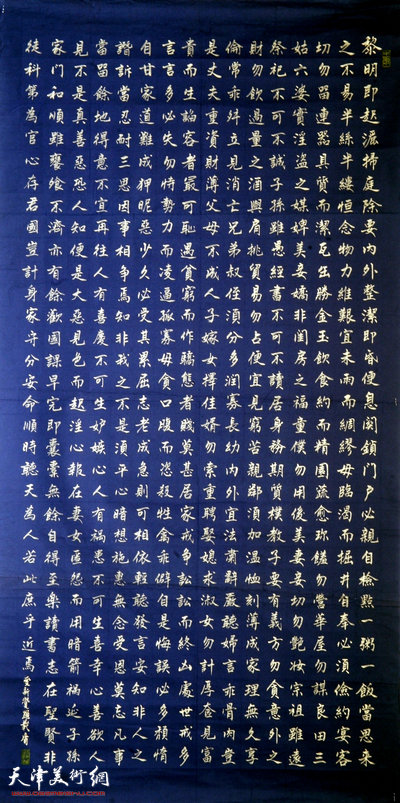 黎明即起灑掃庭除要內外整潔即昏便息關鎖門戶必親自檢點一粥一飯當思來
之不易半絲半縷恒念物力維艱宜未雨而綢繆毋臨渴而掘井自奉必須儉約宴客
切勿留連器具質而潔瓦缶勝金玉飲食約而精園蔬愈珍饈勿營華屋勿謀良田三
姑六婆實淫盜之媒婢美妾嬌非閨房之福童僕勿用俊美妻妾切勿艷妝宗祖雖遠
祭祀不可不誠子孫雖愚經書不可不讀居身務期質樸教子要有義方勿貪意外之
財勿飲過量之酒與肩挑貿易勿占便宜見窮苦親鄰須加溫恤刻薄成家理無久享
倫常乖舛立見消亡兄弟叔侄須分多潤寡長幼內外宜法肅辭嚴聽婦言乖骨肉豈
是丈夫重資財薄父母不成人子嫁女擇佳婿勿索重聘娶媳求淑女勿計厚奩見富
貴而生諂容者最可恥遇貧窮而作驕態者賤莫甚居家戒爭訟訟而終凶處世戒多
言言多必失勿恃勢力而凌逼孤寡毋貪口腹而恣殺牲禽乖僻自是悔誤必多頹惰
自甘家道難成狎昵惡少久必受其累屈志老成急則可相依輕聽發言安知非人之
譖訴當忍耐三思因事相爭焉知非我之不是須平心暗想施惠無念受恩莫忘凡事
當留餘地得意不宜再往人有喜慶不可生妒嫉心人有禍患不可生喜幸心善欲人
見不是真善惡恐人知便是大惡見色而起淫心報在妻女匿怨而用暗箭禍延子孫
家門和順雖饔飧不濟亦有餘歡國課早完即囊橐無餘自得至樂讀書志在聖賢非
徒科第為官心存君國豈計身家守分安命順時聽天為人若此庶乎近焉
天津美術網